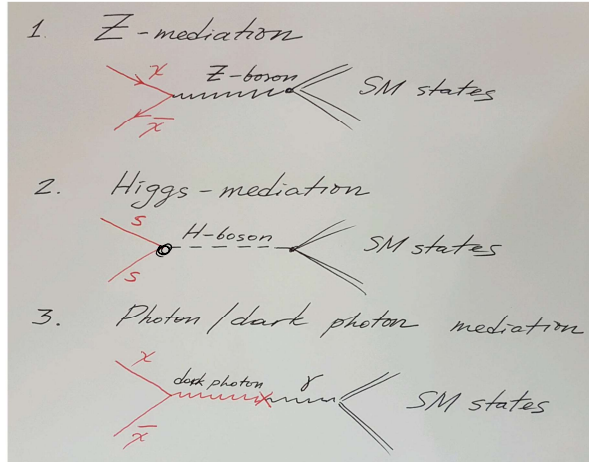 1. Z-mediation
χ
Z-boson
SM states
χ̅
2. Higgs-mediation
s
H-boson
SM states
s
3. Photon/dark photon mediation
χ
dark photon
γ
SM states
χ̅